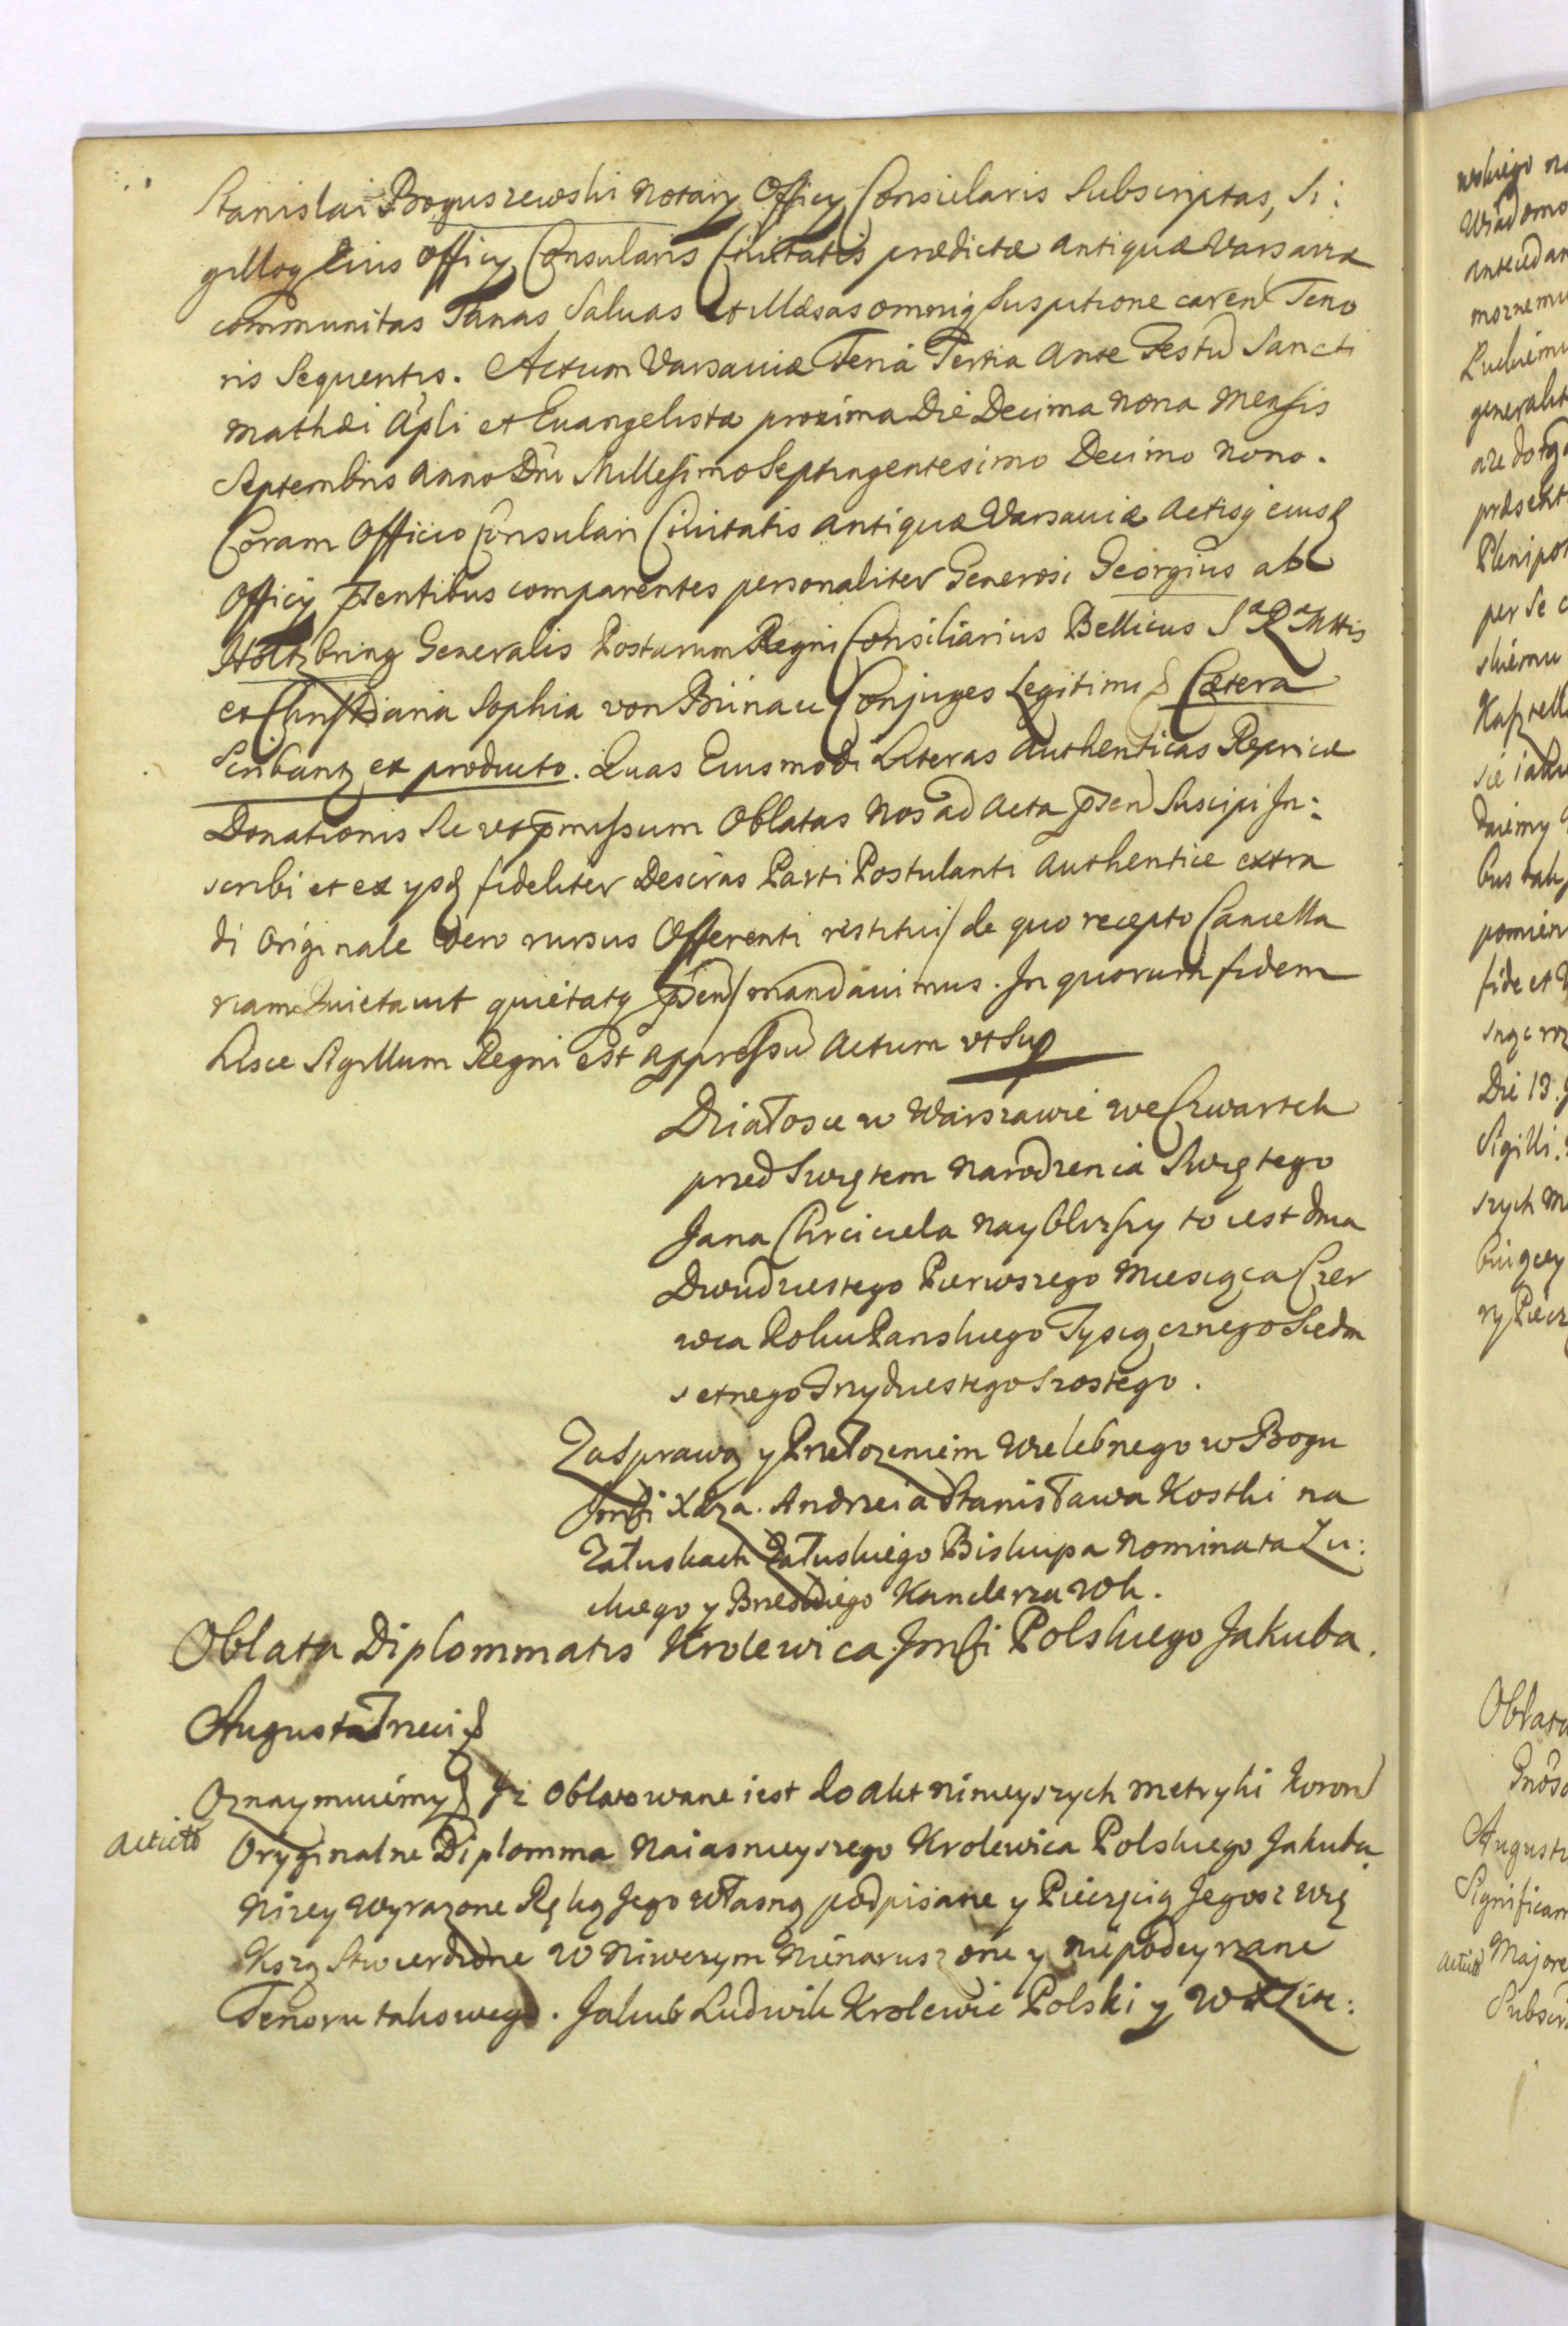 Stanislai Boguszewski Notarÿ Officÿ Consularis Subscriptas, Si:
gilloq Eius Officÿ Consularis Civitatis prædictæ antiquæ Varsaviæ
communitas Sanas Salvas et Illæsas omniq Suspitione caren Teno
ris Sequentis. Actum Varsaviæ Feria Tertia Ante Festū Sancti
Mathæi Apli et Euangelistæ proxima Die Decima Nona Mensis
Septembris Anno Dni Millesimo Septingentesimo Decimo Nono.
Coram Officio Consulari Civitatis Antiquæ Varsaviæ Actisq eiusd
Officÿ pntibus comparentes personaliter Generosi Georgius abl
Holtzbring Generalis Postarum Regni Consiliarius Bellicus S R Mttis
et Christiana Sophia von Bünau Conjuges Legitimi & Cætera
Scribant ex producto. Quas Eiusmodi Literas Authenticas
Donationis Sic vt pmissum Oblatas Nos ad Acta pnsen Suscipi In:
scribi et ex ÿsd fideliter Descrās Parti Postulanti Authentice extra
di Originale vero rursus Offerenti restitui / de quo recepto Cancella
riam Quietavit quietatq pnsen / mandavimus. In quorum fidem
hisce Sigillum Regni est appressū Actum vt Sup
Działosie w Warszawie we Czwartek
przed Swiętem Narodzenia Swiętego
Jana Chrciciela nayblizszy to iest dnia
Dwudziestego Pierwszego Miesiąca Czer
wca Roku Panskiego Tysiącznego Siedm
setnego Trzydziestego Szostego.
Zasprawą y Przełozeniem Wielebnego w Bogu
Jmsci Xdza. Andrzeia Stanisława Kostki na
Załuskach Załuskiego Biskupa Nominata Łu:
ckiego y Brzeskiego Kanclerza Wk.
Oblata Diplommatis Krolewica Jmsci Polskiego Jakuba.
Augusta Trzeci &
Oznaymuiemy & Jz Oblatowane iest do akt ninieyszych metryki Koron
actictō Oryginalne Diplomma Naiasnieyszego Krolewica Polskiego Jakuba
Nizey Wyrazone Ręką Jego własną podpisane y Pieczęcią Jegosz Wię
kszą Stwierdzone w Niwczym Nienaruszone y niepodeyrzane
Tenoru takowego. Jakub Ludwik Krolewic Polski y W X Lite: